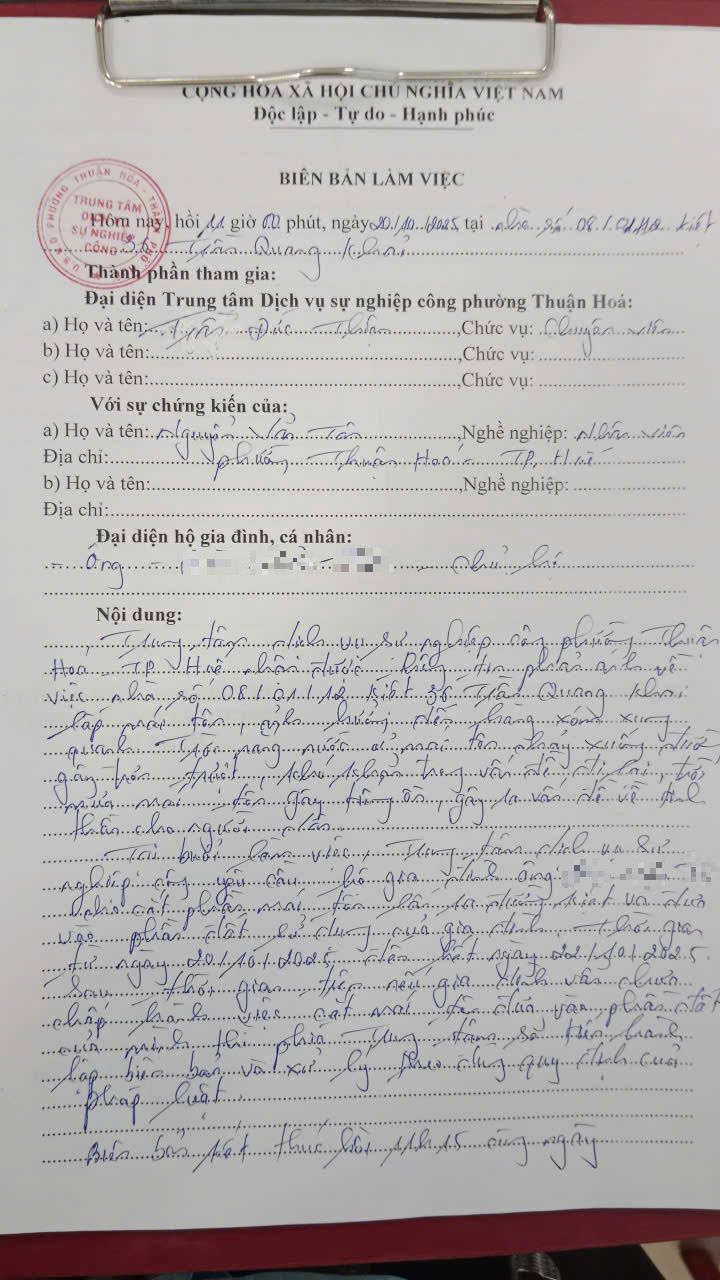 CỘNG HÒA XÃ HỘI CHỦ NGHĨA VIỆT NAM
Độc lập - Tự do - Hạnh phúc
BIÊN BẢN LÀM VIỆC
U.B.N.D PHƯỜNG THUẬN HÓA - THÀNH PHỐ
TRUNG TÂM
SỰ NGHIỆP
CÔNG
Hôm nay, hồi 11 giờ 00 phút, ngày 20/10/2025, tại nhà số 08/01/12 kiệt
36 Trần Quang Khải
Thành phần tham gia:
Đại diện Trung tâm Dịch vụ sự nghiệp công phường Thuận Hoá:
a) Họ và tên: Đức Thiện, Chức vụ: Chuyên viên
b) Họ và tên:, Chức vụ:
c) Họ và tên:, Chức vụ:
Với sự chứng kiến của:
a) Họ và tên: Nguyễn Văn Tân, Nghề nghiệp: Nhân viên
Địa chỉ: phường Thuận Hoá - TP. Huế
b) Họ và tên:, Nghề nghiệp:
Địa chỉ:
Đại diện hộ gia đình, cá nhân:
- Ông - chủ hộ
Nội dung:
Trung tâm dịch vụ sự nghiệp công phường Thuận
Hoá TP Huế nhận được thông tin phản ánh về
việc nhà số 08/01/12 kiệt 36 Trần Quang Khải
lắp mái tôn, ảnh hưởng đến hàng xóm xung
quanh nước ở mái tôn chảy xuống
gây trơn trượt, khó khăn trong vấn đề đi lại, trời
mưa mái tôn gây tiếng ồn, gây ra vấn đề về tinh
thần cho người dân
Tại buổi làm việc, Trung tâm dịch vụ sự
nghiệp công yêu cầu hộ gia đình ông
cắt phần mái tôn lấn ra đường kiệt và đưa
vào phần đất sử dụng của gia đình. Thời gian
từ ngày 20/10/2025 đến hết ngày 22/10/2025.
Sau thời gian trên nếu gia đình vẫn chưa
chấp hành việc cắt mái tôn đưa vào phần đất
của mình thì phía Trung tâm sẽ tiến hành
lập biên bản và xử lý theo đúng quy định của
pháp luật.
Biên bản kết thúc hồi 11h15 cùng ngày